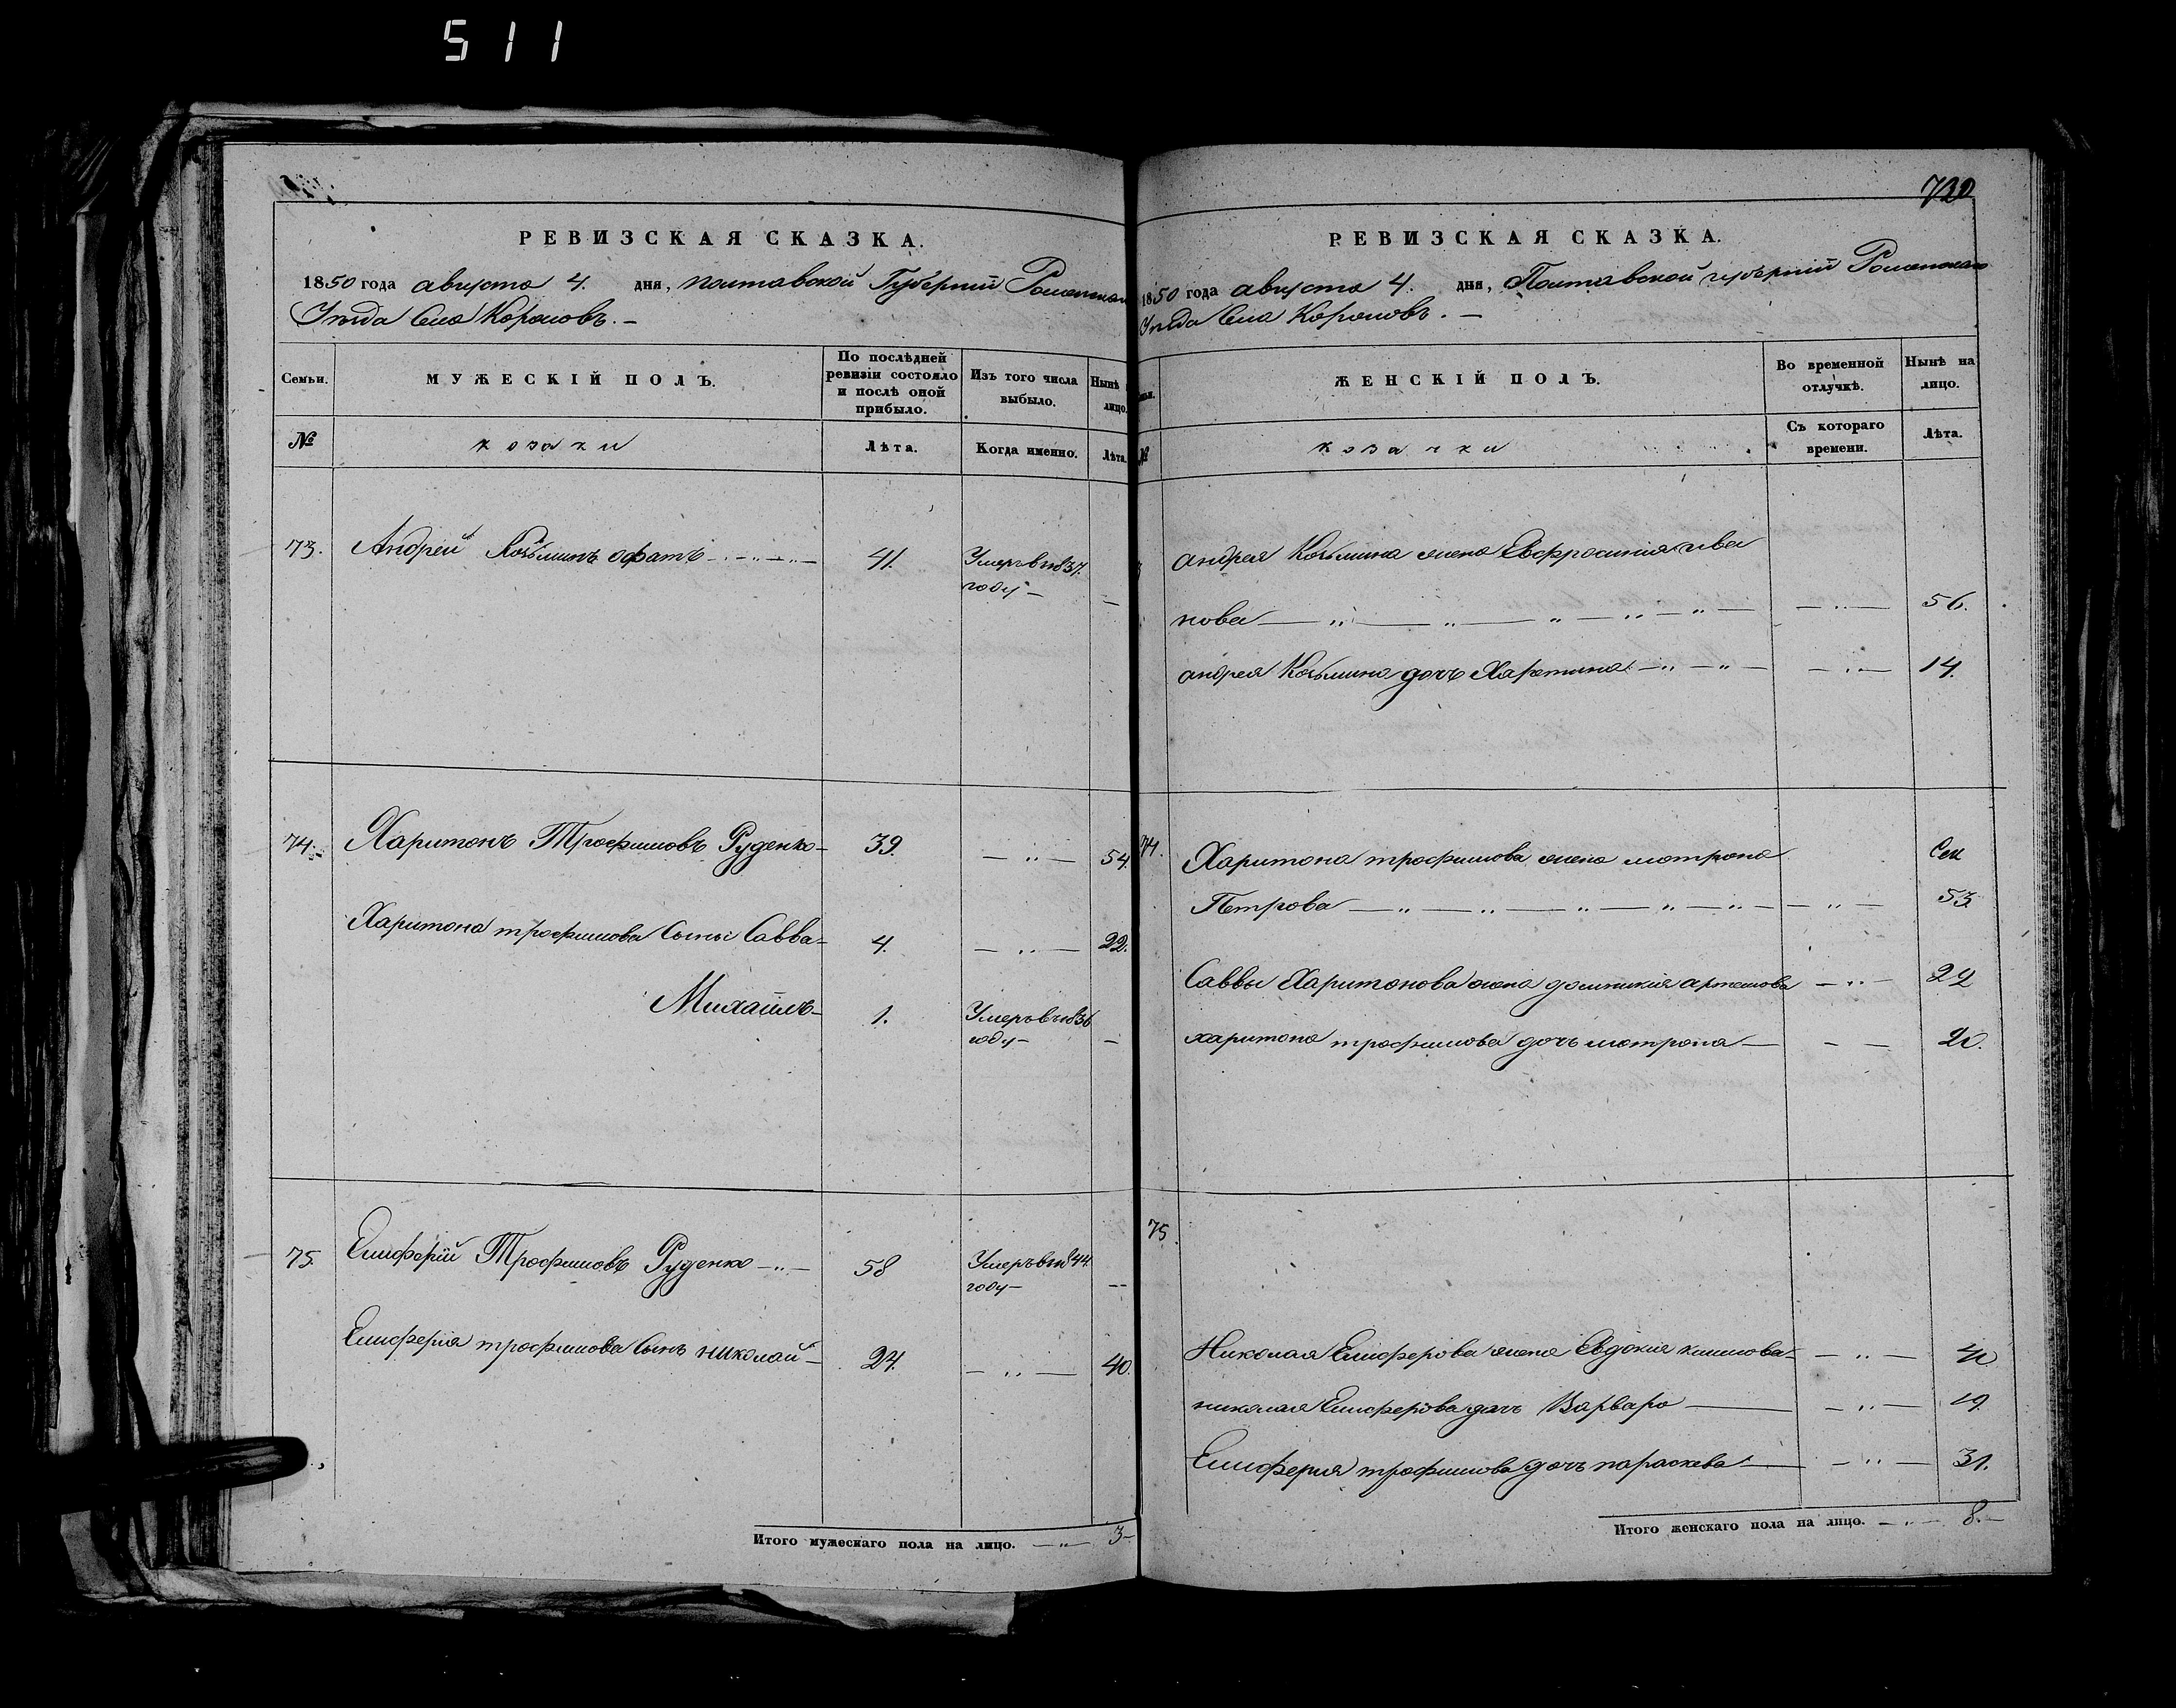 511
РЕВИЗСКАЯ СКАЗКА.
1850 года августа 4. дня, полтавской Губерній
Уѣзда Села Корововъ. —
Семьи.
МУЖЕСКІЙ ПОЛЪ.
По послѣдней ревизіи состояло и послѣ оной прибыло.
Изъ того числа выбыло.
Нынѣ
лицо.
№
козаки
Лѣта.
Когда именно.
Лѣта.
73. Андрей Козьминъ 41. Умеръ въ 1837.
году —
74. Харитонъ Трофимовъ Руденко — 39. — 54.
Харитона трофимова Сыны Савва — 4. — 22.
Михаилъ — 1. Умеръ въ 1836
году —
75. Елиферій Трофимовъ Руденко — 58 Умеръ въ 1844.
году —
Елиферія трофимова Сынъ николай — 24. — 40.
Итого мужескаго пола на лицо. — 3 —
732
РЕВИЗСКАЯ СКАЗКА.
1850 года августа 4. дня, Полтавской губерній Роменскаго
Уѣзда Села Корововъ. —
№
ЖЕНСКІЙ ПОЛЪ.
Во временной отлучкѣ.
Нынѣ на лицо.
козачки
Съ котораго времени.
Лѣта.
андрея Козьмина жена Евфросинія ива
нова — 56.
андрея Козьмина дочь Харетина — 14.
74. Харитона трофимова жена мотрона
Петрова — 53
Саввы Харитонова жена домникія артемова —
харитона трофимова дочь мотрона — 20.
75.
Николая Елиферова жена Евдокія климова —
николая Елиферова дочь Варвара — 19.
Елиферія трофимова дочь параскева — 31.
Итого женскаго пола на лицо. — 8. —